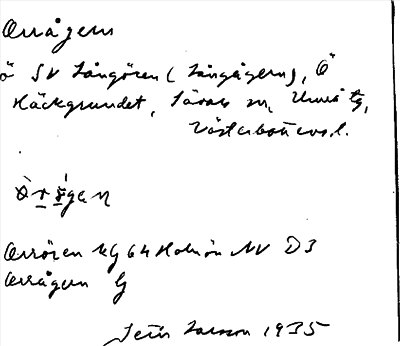 Orrågern
ö SV Långören (Långågern), Ö
Häckgrundet, Sävar sn, Umeå tg,
Västerbottens l.
Orrören KG 64 Holmön NV D3
Orrågern G
Larsson 1935